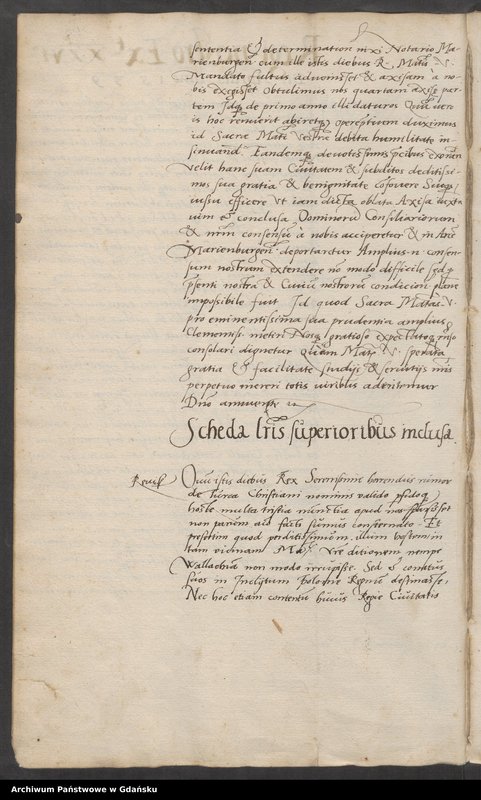 sententia & determination
Notario Ma-
rienburgen cum ille istis diebus R. Matis V.
Mandato fultus advenisset & axisam a no-
bis exegisset obtulimus nos quartam axise par-
tem de primo anno illi daturos
is hoc renuerit
id Sacra Mati Vestra debita humilitate in-
sinuand. Tandemq devotessimis precibus
velit hanc suam Civitatem & subditos deditissi-
mos sua gratia & benignitate
iussu efficere ut iam dicta oblata Axisa iuxta
vim & conclusa Dominorum Consiliariorum
& nrm consensum a nobis acciperetur &
Marienburgen deportaretur Amplius n consen-
sum nostrum extendere no modo difficile sed p
psenti nostra & Civium nostrorum condicion plane
impossibile fuit Id quod Sacra Matas V.
pro eminentissima sua prudentia amplius
Clementiss metiri Nosq gratioso expectatoq rnso
consolari dignetur quam Mats V. sperata
gratia & facilitate studijs & servitijs nris
perpetuo mereri totis viribus adnitemur
Dno annuente
Scheda lris superioribus inclusa.
Quum istis diebus Rex Serenissime horrendus rumor
de Turca Christiani nominis valido
hoste multa tristia nuncia apud nos
non parum aio facti sumus consternato Et
presertim quod perditissimum illum hostem in
tam vicinam Matis Vre ditionem nempe
Wallachia non modo irrupisse. Sed & conatus
suos in Inclytum Polonie Regnum destinasse,
Nec hoc etiam contentu huius Regie Civitatis
Archiwum Państwowe w Gdańsku